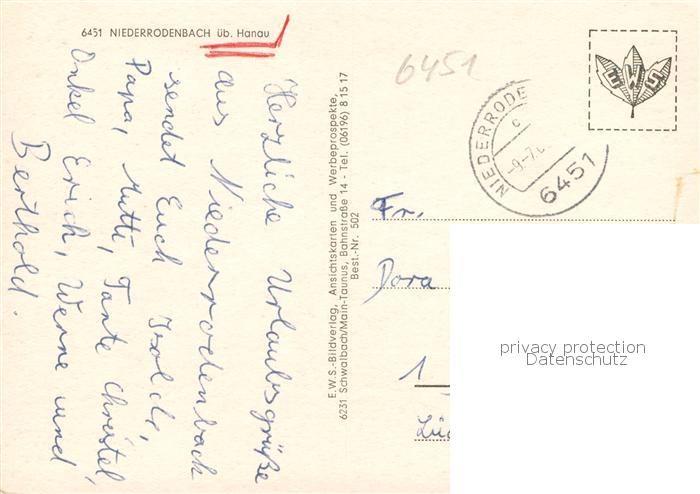 6451 NIEDERRODENBACH üb. Hanau
Herzliche Urlaubsgrüße
aus Niederrodenbach
sendet Euch Isolde,
Papa, Mutti, Tante Christel,
Onkel Erich, Werne und
Berthold.
E.W.S.-Bildverlag, Ansichtskarten und Werbeprospekte,
6231 Schwalbach/Main-Taunus, Bahnstraße 14 - Tel. (06196) 8 15 17
Best.-Nr. 502
6451
EWS
NIEDERRODE
c
-9.-7.
6451
Fr.
Dora
1
privacy protection
Datenschutz